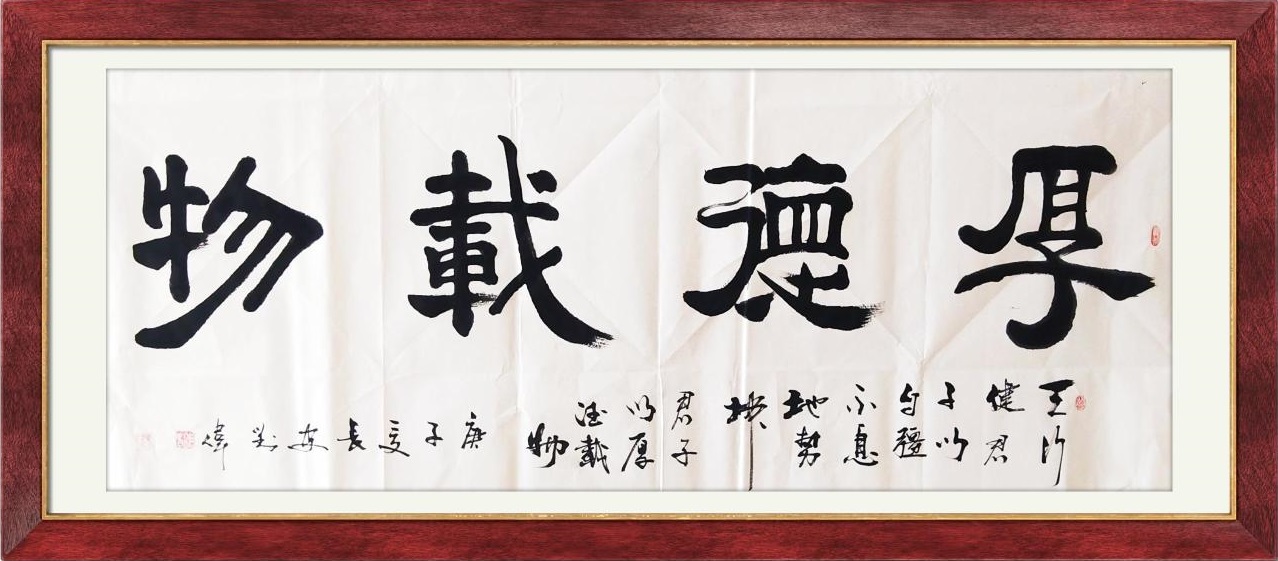 厚德載物
天行
健君
子以
自彊
不息
地勢
坤
君子
以厚
德載
物
庚
子
夏
長
安
偉